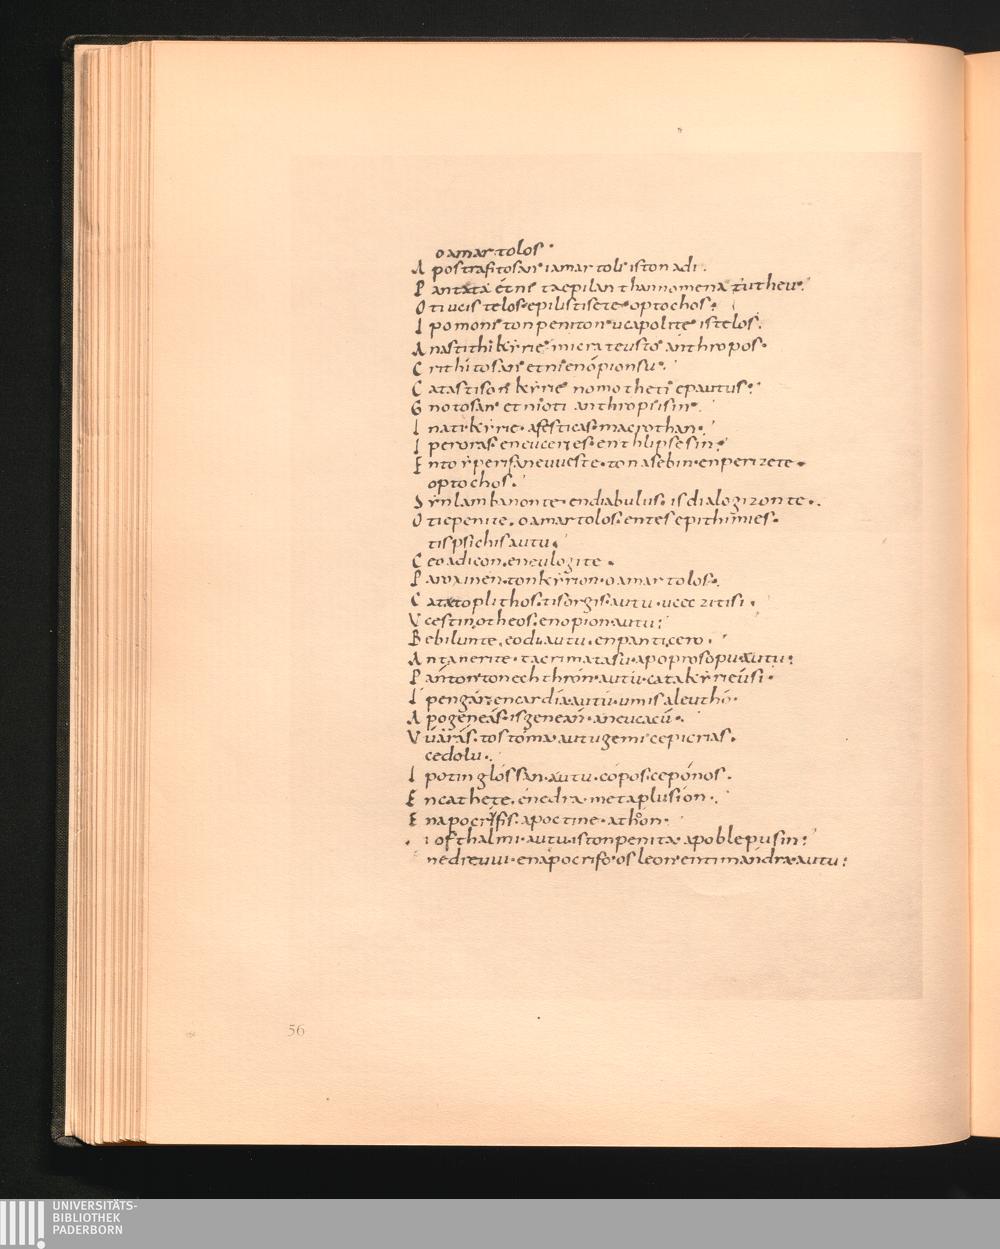 o amartolos·
Apostrafitosan· i amartoli· is ton adi·
Panta ta etni· ta epilanthannomena tu theu·
Oti ucis telos· epilistisete· optochos·
Ipomoni· ton peniton· uc apolite· is telos·
Anastithi· kyrie· mi crateustó anthropos·
Crithitosan· etni· enópionsu·
Catastison· kyrie· nomotheti· epautus·
Gnotosan· etni· oti anthropi isin·
Inati· kyrie· afesticas· macrothan·
Iperoras· en euceries· en thlipsesin·
En to yperifaneuueste· ton asebin· enperizete·
optochos·
Synlambanonte· en diabulus· is dialogizonte·
Oti epenite· o amartolos· en tes epithimies·
tis psichis autu·
Ce o adicon· eneulogite·
Paroxinen· ton kyrion· o amartolos·
Cata to plithos· tis orgis· autu· uc eczitisi·
Uc estin· o theos· enopion autu·
Bebilunte· e odi· autu· en panti cero·
Antanerite· ta crimata su· apo prosopu autu·
Panton· ton echthrón· autu· catakyrieúsi·
Ipen gar· en cardía· autú· u mi saleuthó·
Apo geneás· is geneán· aneu cacú·
U· u arás· to stóma· autu gemi· ce picrias·
ce dolu·
Ipo tin glóssan· autu· cópos· ce pónos·
Encathete· enedra· meta plusíon·
En apocrifis· apoctine· athóon·
i ofthalmi· autu· is ton penita· apoblepusin·
nedreuui· en apocrifo· os leon· en ti mandra· autu·
56
UNIVERSITÄTS-
BIBLIOTHEK
PADERBORN